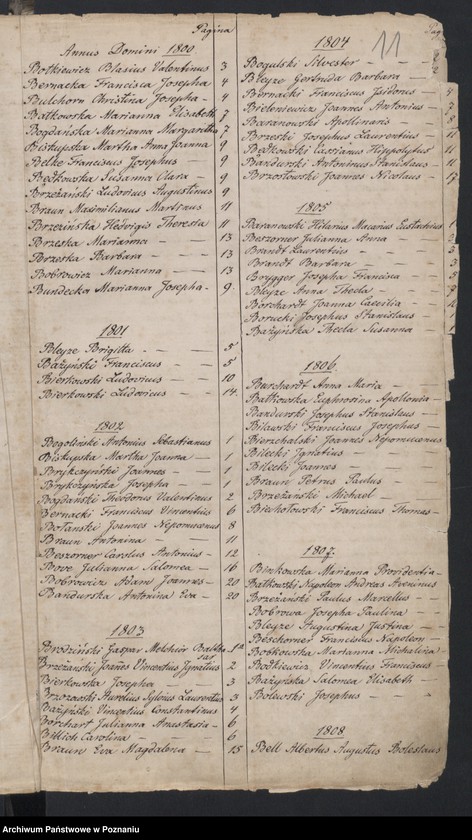 Pagina
Annus Domini 1800
Botkiewicz Blasius Valentinus 3
Bernacka Francisca Josepha 4
Bulchorn Christina Josepha - 4
Bałkowska Marianna Elisabeth 7
Bogdańska Marianna Margaritha 7
Biskupska Martha Anna Joanna 9
Belke Franciscus Josephus 9
Będkowska Susanna Clara - 9
Brzeżański Ludovicus Augustinus 9
Braun Maximilianus Martinus 11
Brzezińska Hedvigis Theresia 11
Brzeska Marianna - - 13
Brzeska Barbara - - 13
Bobrowicz Marianna - 13
Bundecka Marianna Josepha - 9
1801
Bleyze Brigitta - - 5
Bażyński Franciscus - - 5
Bierkowski Ludovicus - - 10
Bierkowski Ludovicus - - 14
1802
Bogoliński Antonius Sebastianus 1
Biskupska Martha Joanna - 1
Brykczyński Joannes - - 1
Brykczyńska Josepha - 1
Bogdański Theodorus Valentinus 2
Bernacki Franciscus Vincentius 6
Botański Joannes Nepomucenus 8
Braun Antonina - - 11
Beszorner Carolus Antonius - 12
Bove Julianna Salomea - 16
Bobrowicz Adam Joannes - 20
Bandurska Antonina Eva - 20
1803
Brodziński Gaspar Melchior Balthasar 1
Brzeżański Joannes Vincentius Ignatius 2
Bierkowska Josepha - 3
Brzozowski Aurelius Laurentius 3
Bażyński Vincentius Constantinus 4
Borchart Julianna Anastasia - 6
Billich Carolina - - 6
Braun Eva Magdalena - 15
1804
11
Bogulski Silvester - -
Bleyze Gertruda Barbara -
Bernacki Franciscus Isidorus 4
Bieleniewicz Joannes Antonius - 7
Baranowski Apollinaris 8
Brzeski Josephus Laurentius 11
Będkowski Cassianus Hippolytus 11
Bandurski Antoninus Stanislaus - 11
Brzostowski Joannes Nicolaus - 17
1805
Baranowski Hilarius Macarius Eustachius
Beszorner Julianna Anna -
Brandt Laurentius - -
Brandt Barbara - -
Brygger Josepha Francisca
Bleyze Anna Thecla -
Borchardt Joanna Caecilia -
Borucki Josephus Stanislaus
Bażyńska Thecla Susanna
1806
Burchardt Anna Maria -
Bałkowska Euphrosina Apollonia
Bandurski Josephus Stanislaus -
Bilawski Franciscus Josephus
Bierzchalski Joannes Nepomucenus
Bilecki Ignatius -
Bilecki Joannes
Braun Petrus Paulus -
Brzeżański Michael -
Biechołowski Franciscus Thomas -
1807
Binkowska Marianna Providentia -
Bałkowski Napoleon Andreas Aveninus
Brzeżański Paulus Marcellus -
Bobrowa Josepha Paulina -
Bleyze Augustina Justina -
Beschorner Franciscus Napoleon -
Bobkowska Marianna Michalina
Bodkiewicz Vincentius Franciscus
Bażyńska Salomea Elisabeth -
Bolewski Josephus - -
1808
Bell Albertus Augustus Boleslaus
Archiwum Państwowe w Poznaniu